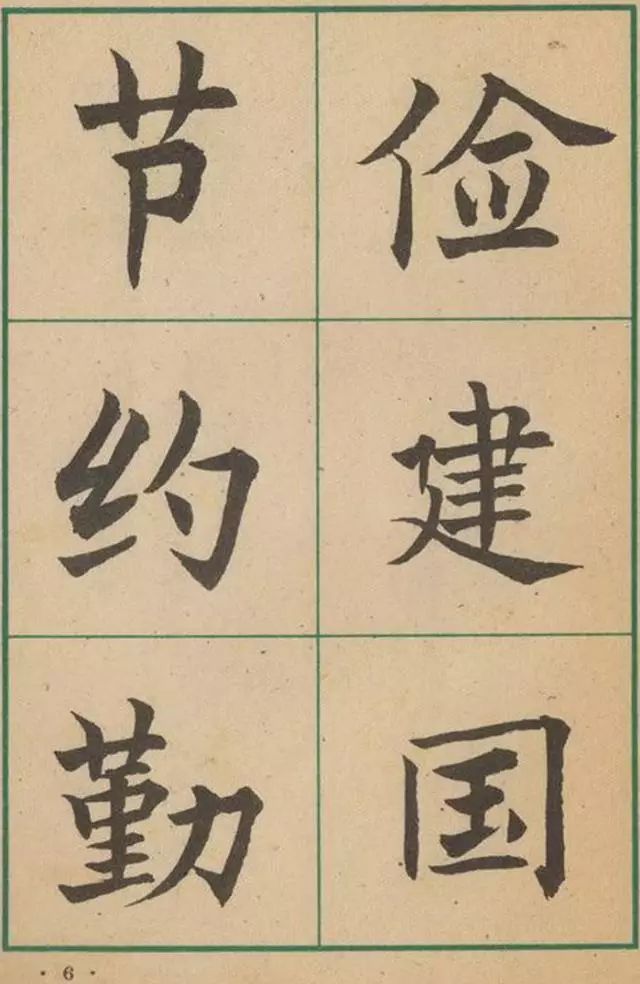 节约勤
俭建国
·6·